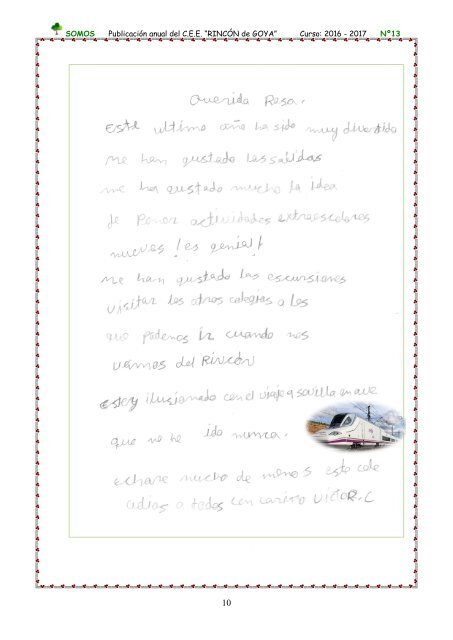 SOMOS Publicación anual del C.E.E. "RINCÓN de GOYA" Curso: 2016 - 2017 Nº13
Querida Rosa.
este ultimo año ha sido muy divertido
me han gustado las salidas
me ha gustado mucho la idea
de Poner actividades extraescolares
nuevas ¡es genial!
me han gustado las escursiones
visitar los otros colegios a los
que podemos ir cuando nos
vamos del Rincón
estoy ilusionado con el viaje a sevilla en ave
que no he ido nunca.
echare mucho de menos este cole
adios a todos con cariño VICTOR.C
10